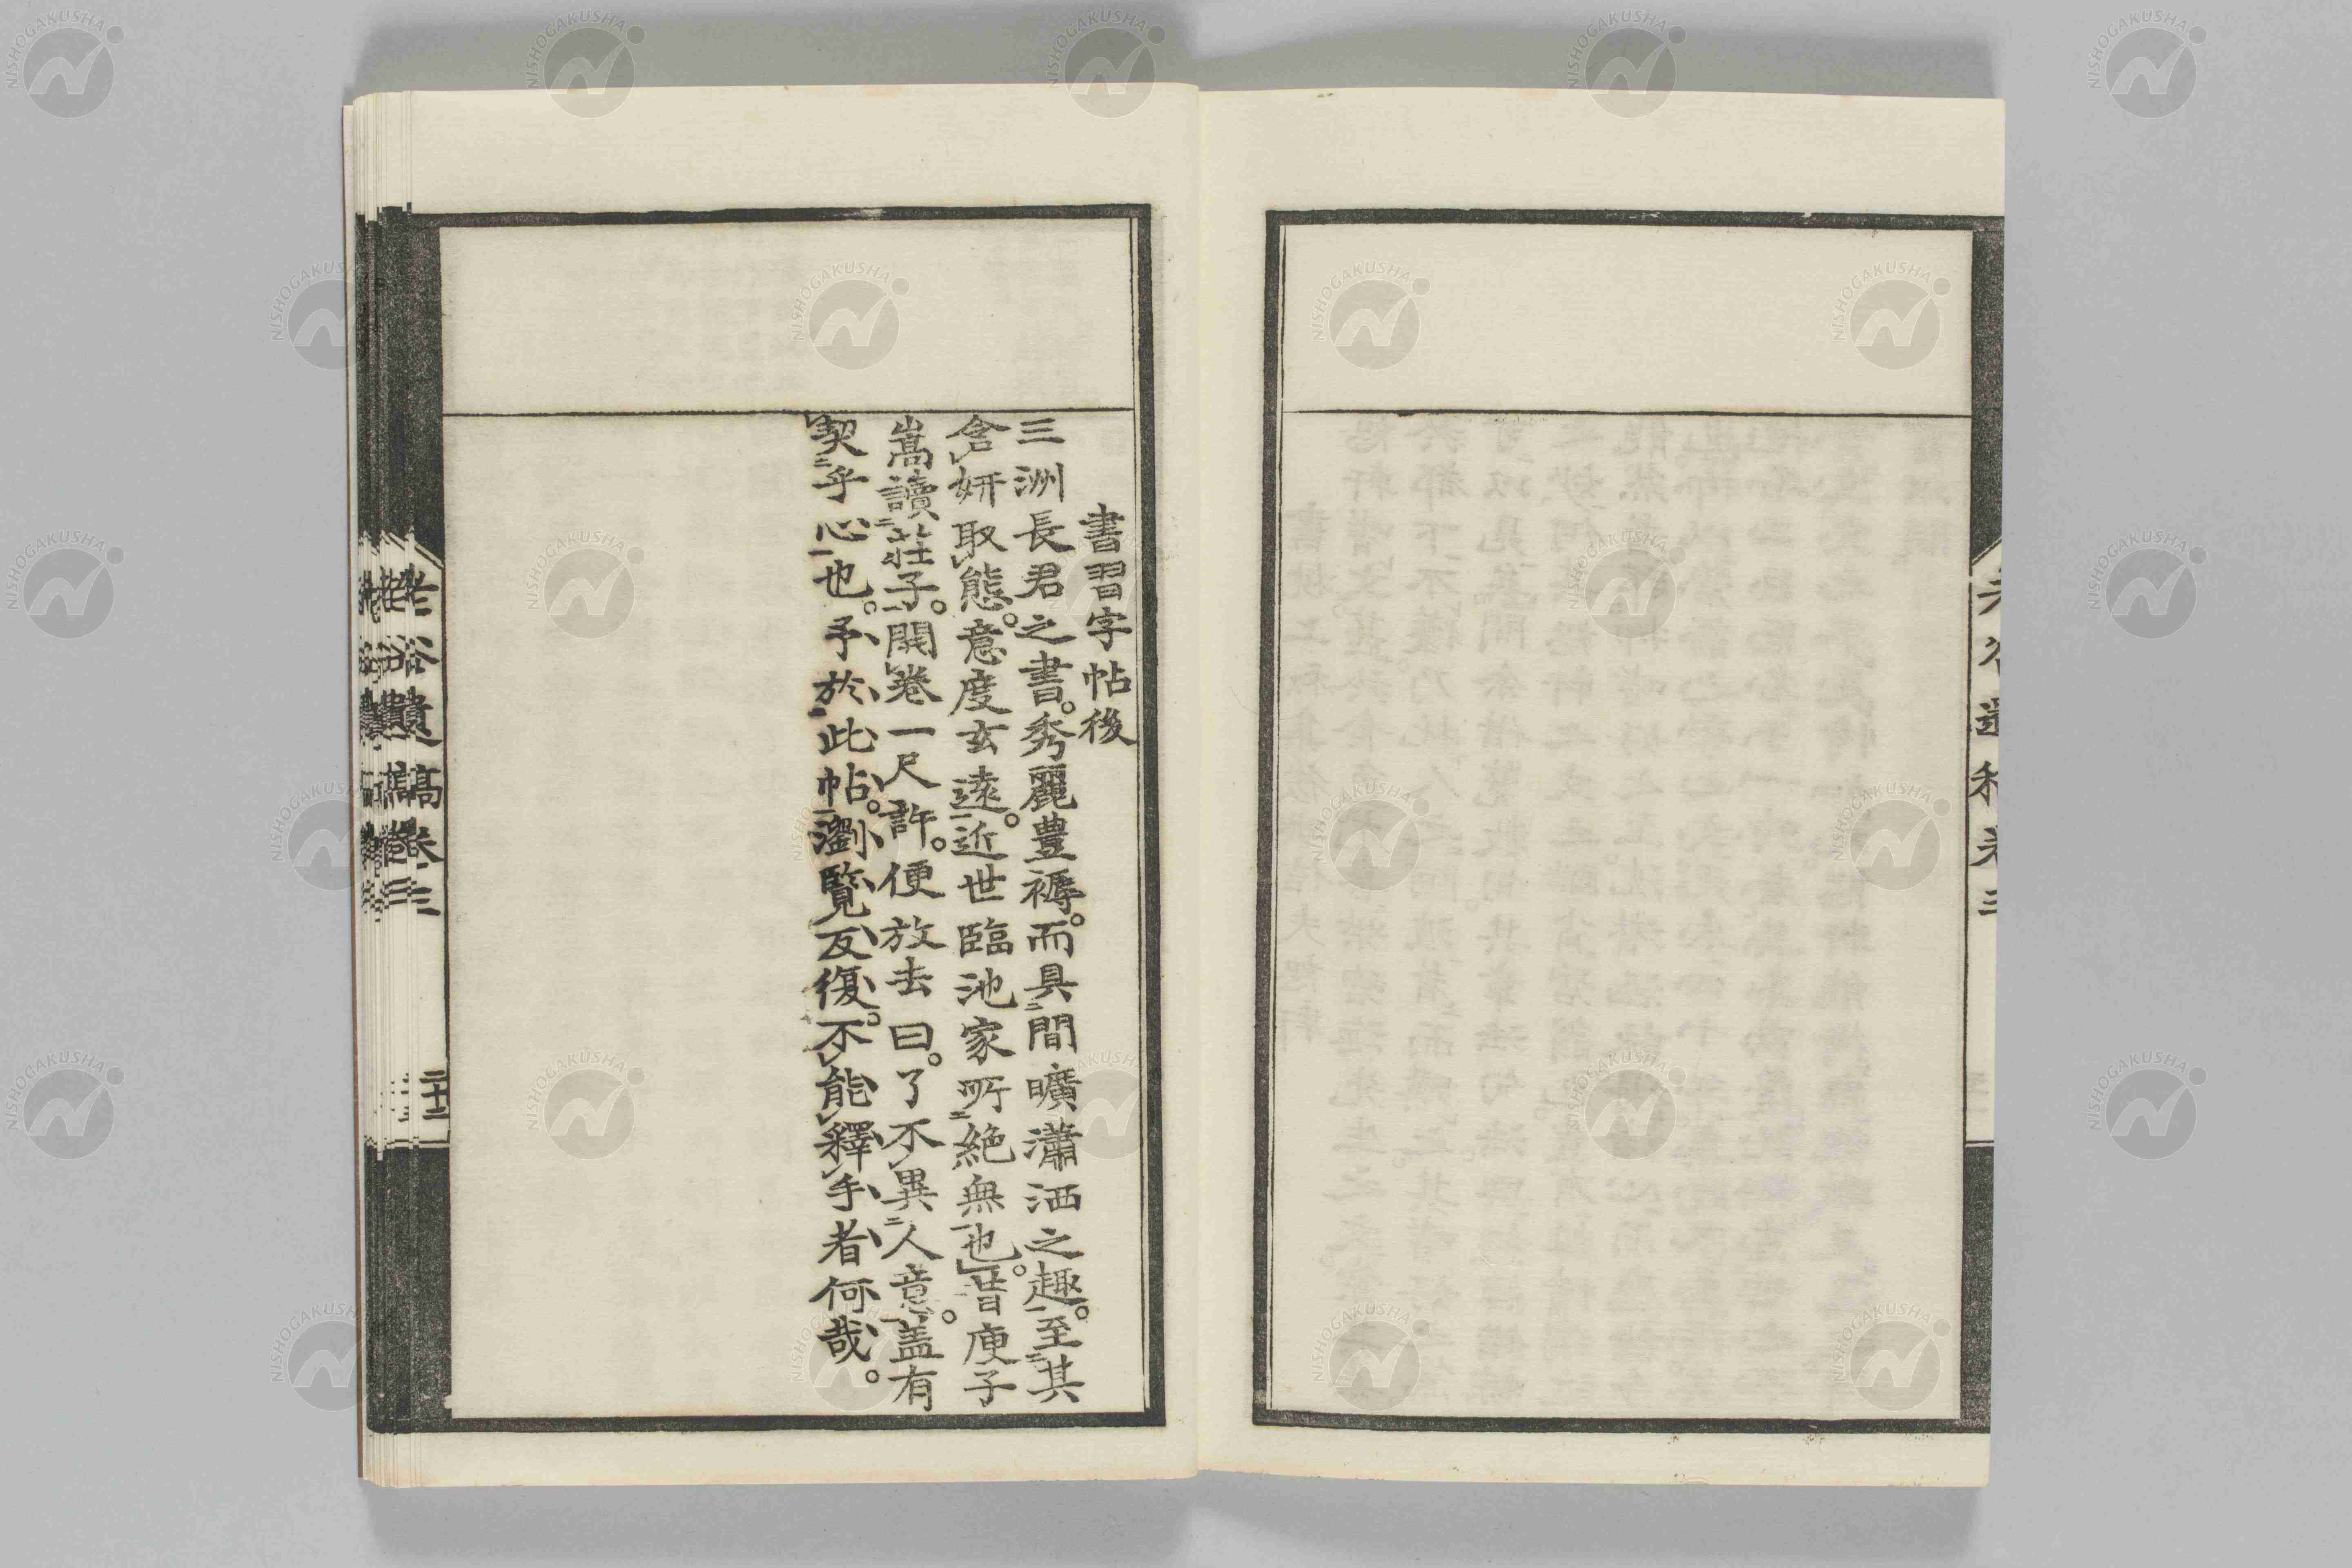 書習字帖後
三洲長君之書。秀麗豊褥。而具間曠瀟洒之趣。至其
含妍取態。意度玄遠。近世臨池家所絶無也。昔庾子
嵩讀莊子。開卷一尺許。便放去曰。了不異人意。盖有
契乎心也。予於此帖。瀏覧反復。不能釋手者何哉。
老谿遺稿卷三
二十二